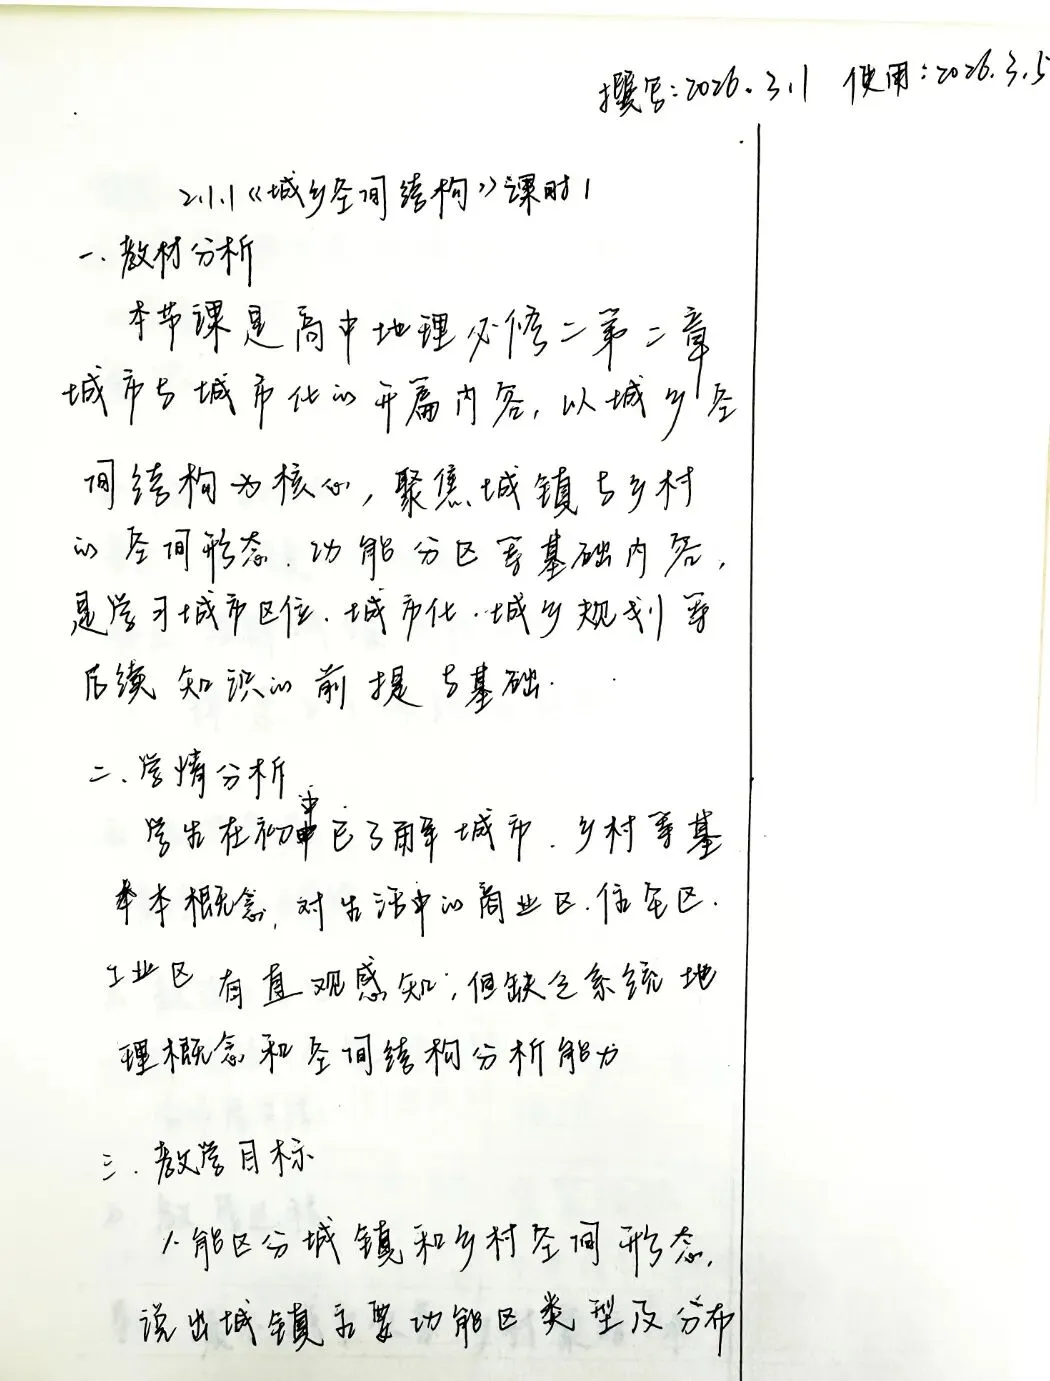 撰写:2026.3.1 使用:2026.3.5
2.1.1《城乡空间结构》课时1
一、教材分析
本节课是高中地理必修二第二章
城市与城市化的开篇内容,以城乡空
间结构为核心,聚焦城镇与乡村
的空间形态、功能分区等基础内容,
是学习城市区位、城市化、城乡规划等
后续知识的前提与基础.
二、学情分析
学生在初中已了解城市、乡村等基
本概念,对生活中的商业区、住宅区、
工业区有直观感知,但缺乏系统地
理概念和空间结构分析能力
三、教学目标
1.能区分城镇和乡村空间形态,
说出城镇主要功能区类型及分布